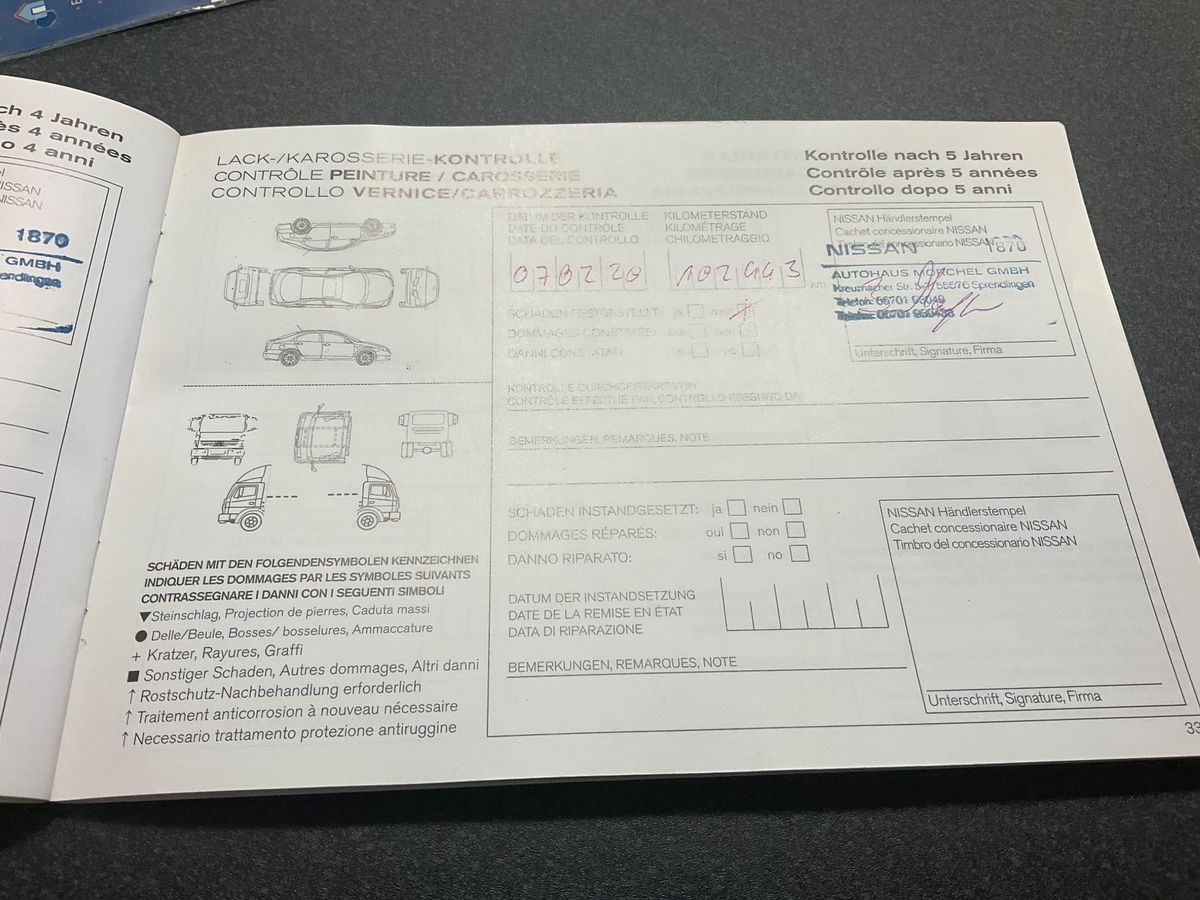 ch 4 Jahren
ès 4 années
o 4 anni
NISSAN
NISSAN
1870
GMBH
Sprendlingen
LACK-/KAROSSERIE-KONTROLLE
CONTRÔLE PEINTURE / CAROSSERIE
CONTROLLO VERNICE/CARROZZERIA
Kontrolle nach 5 Jahren
Contrôle après 5 années
Controllo dopo 5 anni
DATUM DER KONTROLLE
DATE DU CONTRÔLE
DATA DEL CONTROLLO
KILOMETERSTAND
KILOMÉTRAGE
CHILOMETRAGGIO
070220
102443
km
NISSAN Händlerstempel
Cachet concessionaire NISSAN
Timbro del concessionario NISSAN
NISSAN 1870
AUTOHAUS MORCHEL GMBH
Kreuznacher Str. 55576 Sprendlingen
Telefon: 06701
Unterschrift, Signature, Firma
SCHADEN FESTGESTELLT: ja nein
DOMMAGES CONSTATÉS: oui non
DANNI CONSTATATI: si no
KONTROLLE DURCHGEFÜHRT VON
CONTRÔLE EFFECTUÉ PAR, CONTROLLO ESEGUITO DA
BEMERKUNGEN, REMARQUES, NOTE
SCHÄDEN MIT DEN FOLGENDENSYMBOLEN KENNZEICHNEN
INDIQUER LES DOMMAGES PAR LES SYMBOLES SUIVANTS
CONTRASSEGNARE I DANNI CON I SEGUENTI SIMBOLI
▼Steinschlag, Projection de pierres, Caduta massi
● Delle/Beule, Bosses/ bosselures, Ammaccature
+ Kratzer, Rayures, Graffi
■ Sonstiger Schaden, Autres dommages, Altri danni
↑ Rostschutz-Nachbehandlung erforderlich
↑ Traitement anticorrosion à nouveau nécessaire
↑ Necessario trattamento protezione antiruggine
SCHADEN INSTANDGESETZT: ja nein
DOMMAGES RÉPARÉS: oui non
DANNO RIPARATO: si no
DATUM DER INSTANDSETZUNG
DATE DE LA REMISE EN ÉTAT
DATA DI RIPARAZIONE
BEMERKUNGEN, REMARQUES, NOTE
NISSAN Händlerstempel
Cachet concessionaire NISSAN
Timbro del concessionario NISSAN
Unterschrift, Signature, Firma
33